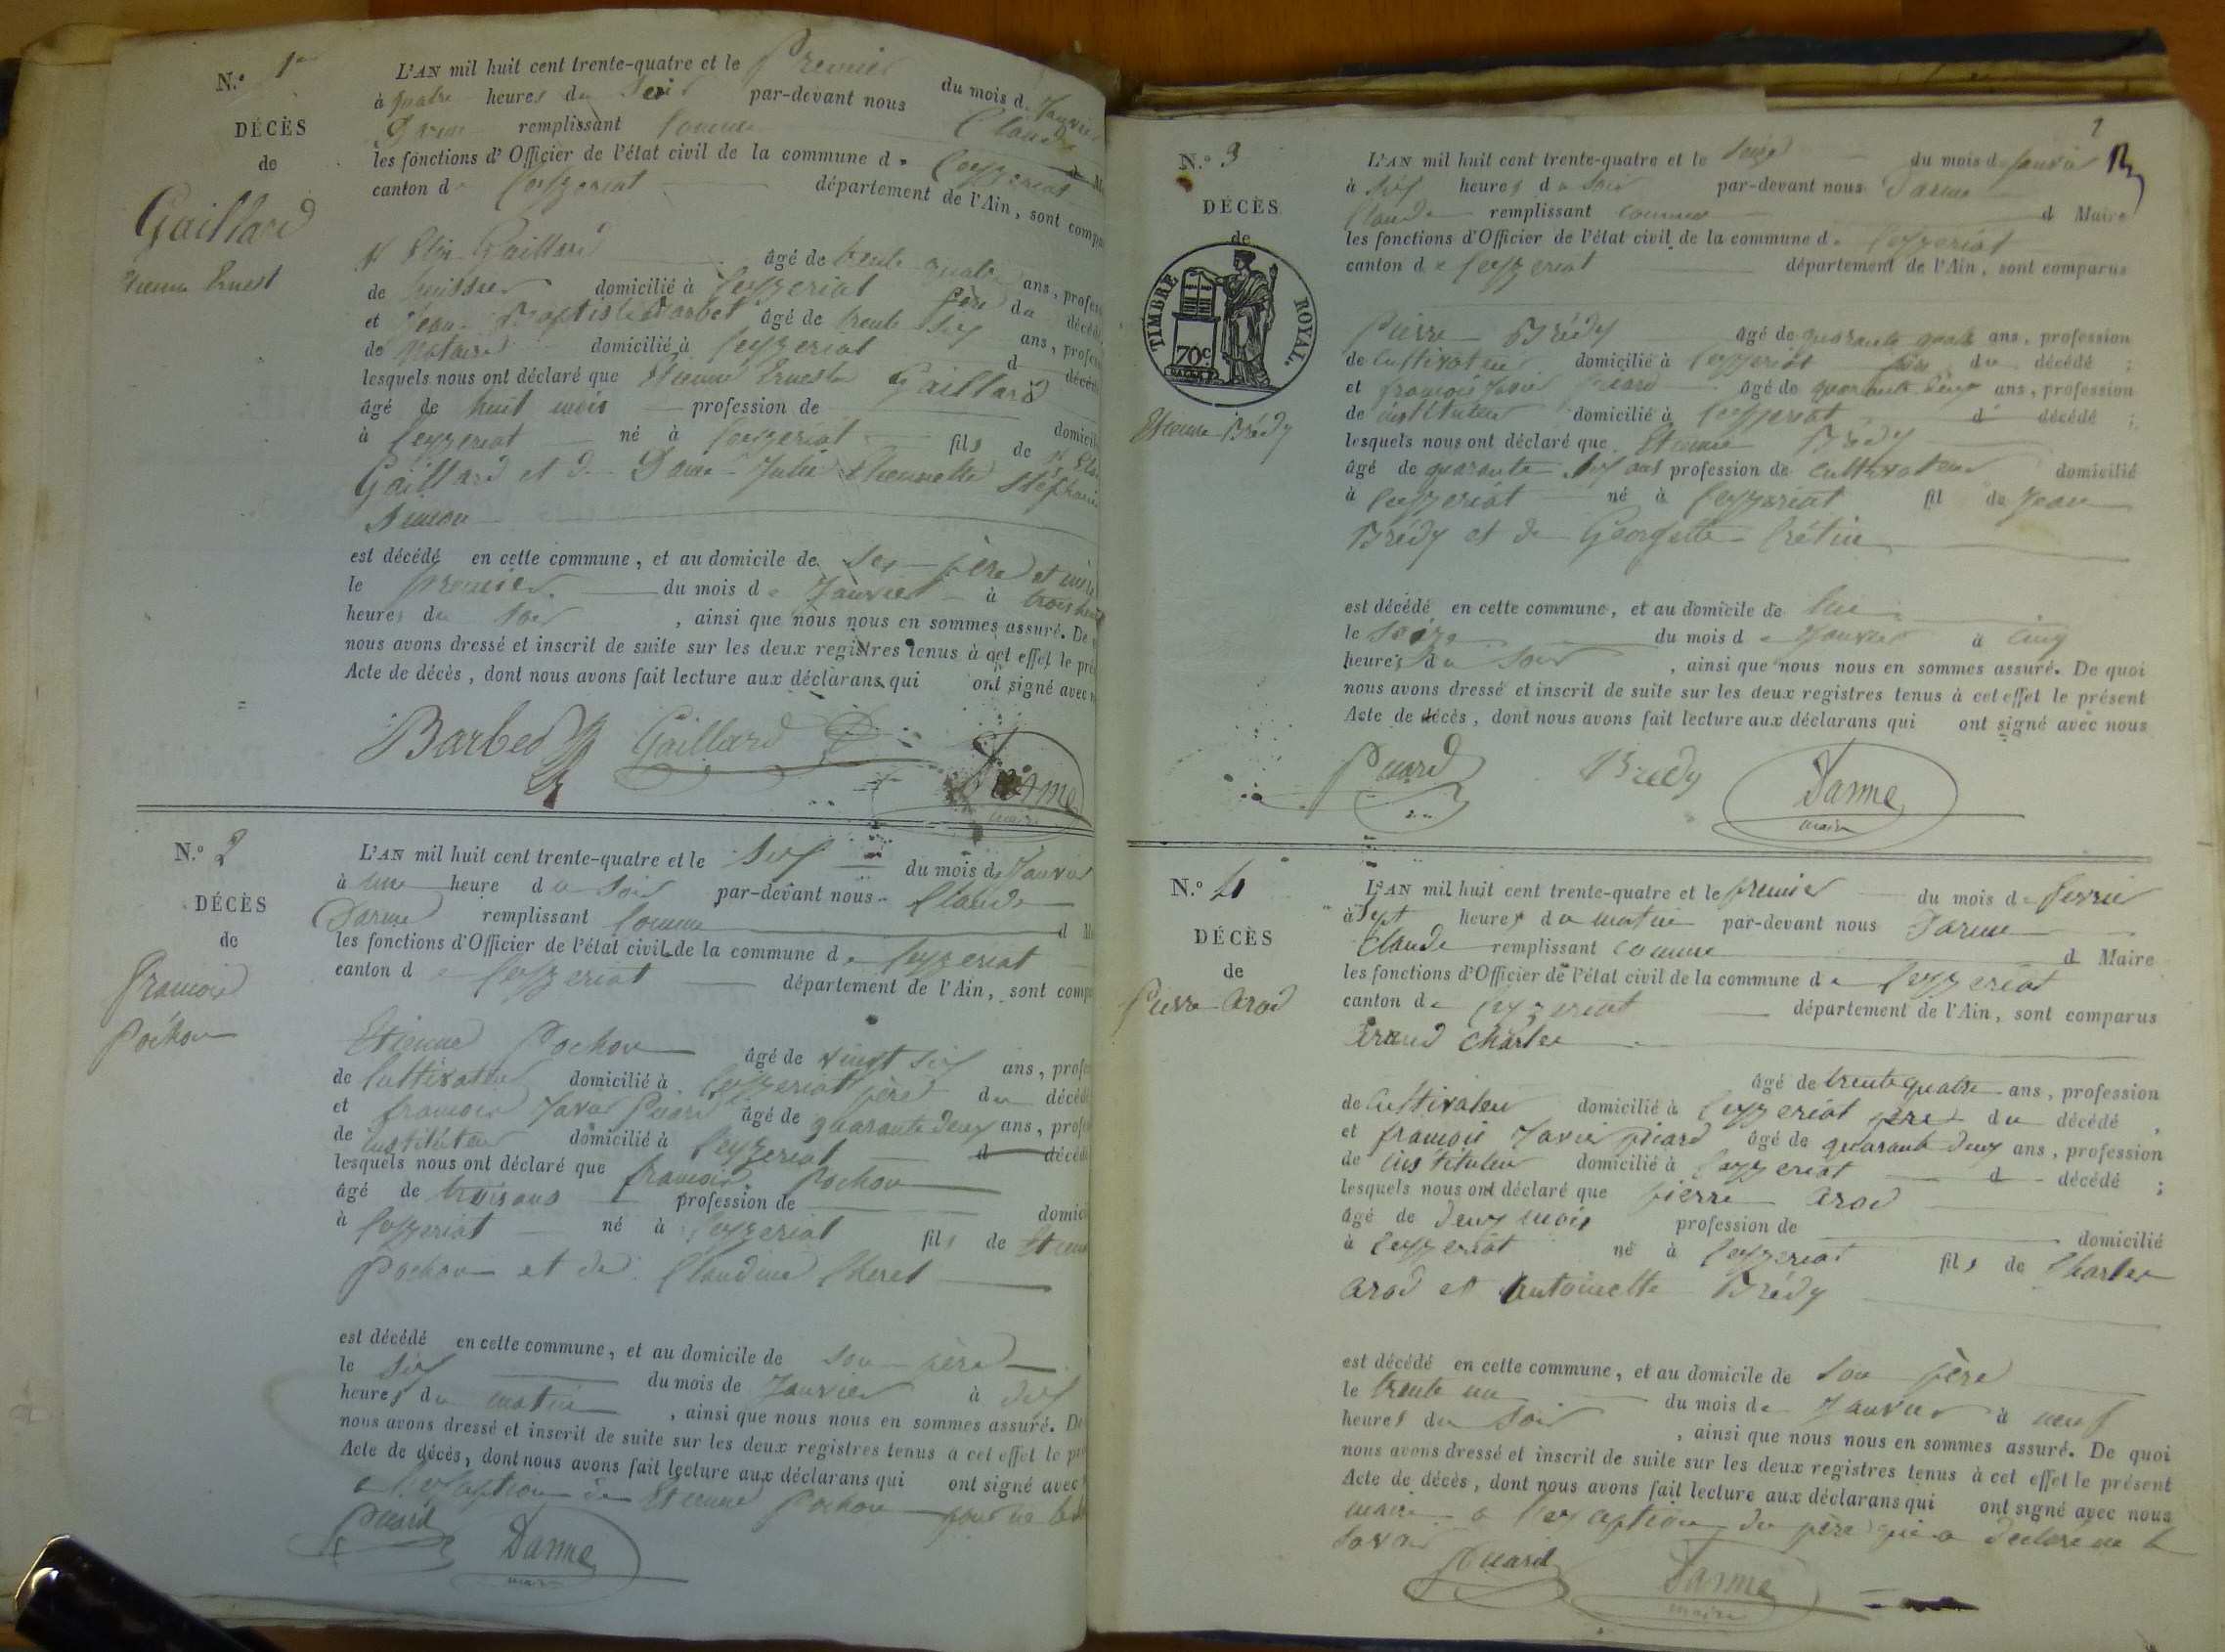 N.º 1er
DÉCÈS
de
Gaillard
Etienne Ernest
L'AN mil huit cent trente-quatre et le Premier du mois de Janvier
à quatre heures du Soir par-devant nous Claude
Darme remplissant comme d M
les fonctions d'Officier de l'état civil de la commune de Ceyzeriat
canton de Ceyzeriat département de l'Ain, sont compa
Gaillard âgé de trente quatre ans, profess
de huissier domicilié à Ceyzeriat père du décédé
et Jean Baptiste Barbet âgé de trente six ans, profess
de Notaire domicilié à Ceyzeriat d décédé
lesquels nous ont déclaré que Etienne Ernest Gaillard
âgé de huit mois profession de domicili
à Ceyzeriat né à Ceyzeriat fils de
Gaillard et de Dame Julie Etiennette Stéphanie
est décédé en cette commune, et au domicile de ses père et mère
le premier du mois de Janvier à trois
heures du soir, ainsi que nous nous en sommes assuré. De
nous avons dressé et inscrit de suite sur les deux registres tenus à cet effet le pré
Acte de décès, dont nous avons fait lecture aux déclarans qui ont signé avec n
Barbet Gaillard Darme
maire
N.º 2
DÉCÈS
de
François
Pochon
L'AN mil huit cent trente-quatre et le six du mois de Janvier
à une heure du soir par-devant nous Claude
Darme remplissant comme d M
les fonctions d'Officier de l'état civil de la commune de Ceyzeriat
canton de Ceyzeriat département de l'Ain, sont compa
Etienne Pochon âgé de vingt six ans, profes
de Cultivateur domicilié à Ceyzeriat père du décédé
et françois Xavier Picard âgé de quarante deux ans, profes
de instituteur domicilié à Ceyzeriat d décédé
lesquels nous ont déclaré que françois Pochon
âgé de trois ans profession de domici
à Ceyzeriat né à Ceyzeriat fils de Etienne
Pochon et de Claudine Cheret
est décédé en cette commune, et au domicile de son père
le six du mois de Janvier à dix
heures du matin, ainsi que nous nous en sommes assuré. De
nous avons dressé et inscrit de suite sur les deux registres tenus à cet effet le pré
Acte de décès, dont nous avons fait lecture aux déclarans qui ont signé avec
a l'exception de Etienne Pochon pour ne le
Picard Darme
maire
2
N.º 3
DÉCÈS
de
TIMBRE ROYAL.
70c
Etienne Brédy
L'AN mil huit cent trente-quatre et le seize du mois de Janvier
à six heures du soir par-devant nous Darme
Claude remplissant comme d Maire
les fonctions d'Officier de l'état civil de la commune de Ceyzeriat
canton de Ceyzeriat département de l'Ain, sont comparus
Pierre Brédy âgé de quarante quatre ans, profession
de Cultivateur domicilié à Ceyzeriat du décédé ;
et françois Xavier Picard âgé de quarante deux ans, profession
de instituteur domicilié à Ceyzeriat d décédé ;
lesquels nous ont déclaré que Etienne Brédy
âgé de quarante six ans profession de Cultivateur domicilié
à Ceyzeriat né à Ceyzeriat fil de Jean
Brédy et de Georgette Crétin
est décédé en cette commune, et au domicile de lui
le seize du mois de Janvier à cinq
heures du soir, ainsi que nous nous en sommes assuré. De quoi
nous avons dressé et inscrit de suite sur les deux registres tenus à cet effet le présent
Acte de décès, dont nous avons fait lecture aux déclarans qui ont signé avec nous
Picard Bredy Darme
maire
N.º 4
DÉCÈS
de
Pierre Arod
L'AN mil huit cent trente-quatre et le premier du mois de fevrier
à sept heures du matin par-devant nous Darme
Claude remplissant comme d Maire
les fonctions d'Officier de l'état civil de la commune de Ceyzeriat
canton de Ceyzeriat département de l'Ain, sont comparus
Charles
âgé de trente quatre ans, profession
de Cultivateur domicilié à Ceyzeriat père du décédé ,
et françois Xavier picard âgé de quarante deux ans, profession
de instituteur domicilié à Ceyzeriat d décédé ;
lesquels nous ont déclaré que pierre arod
âgé de deux mois profession de domicilié
à Ceyzeriat né à Ceyzeriat fils de Charles
arod et Antoinette Brédy
est décédé en cette commune, et au domicile de son père
le trente un du mois de Janvier à neuf
heures du soir, ainsi que nous nous en sommes assuré. De quoi
nous avons dressé et inscrit de suite sur les deux registres tenus à cet effet le présent
Acte de décès, dont nous avons fait lecture aux déclarans qui ont signé avec nous
maire a l'exception du père qui a declaré ne le
savoir
Picard Darme
maire